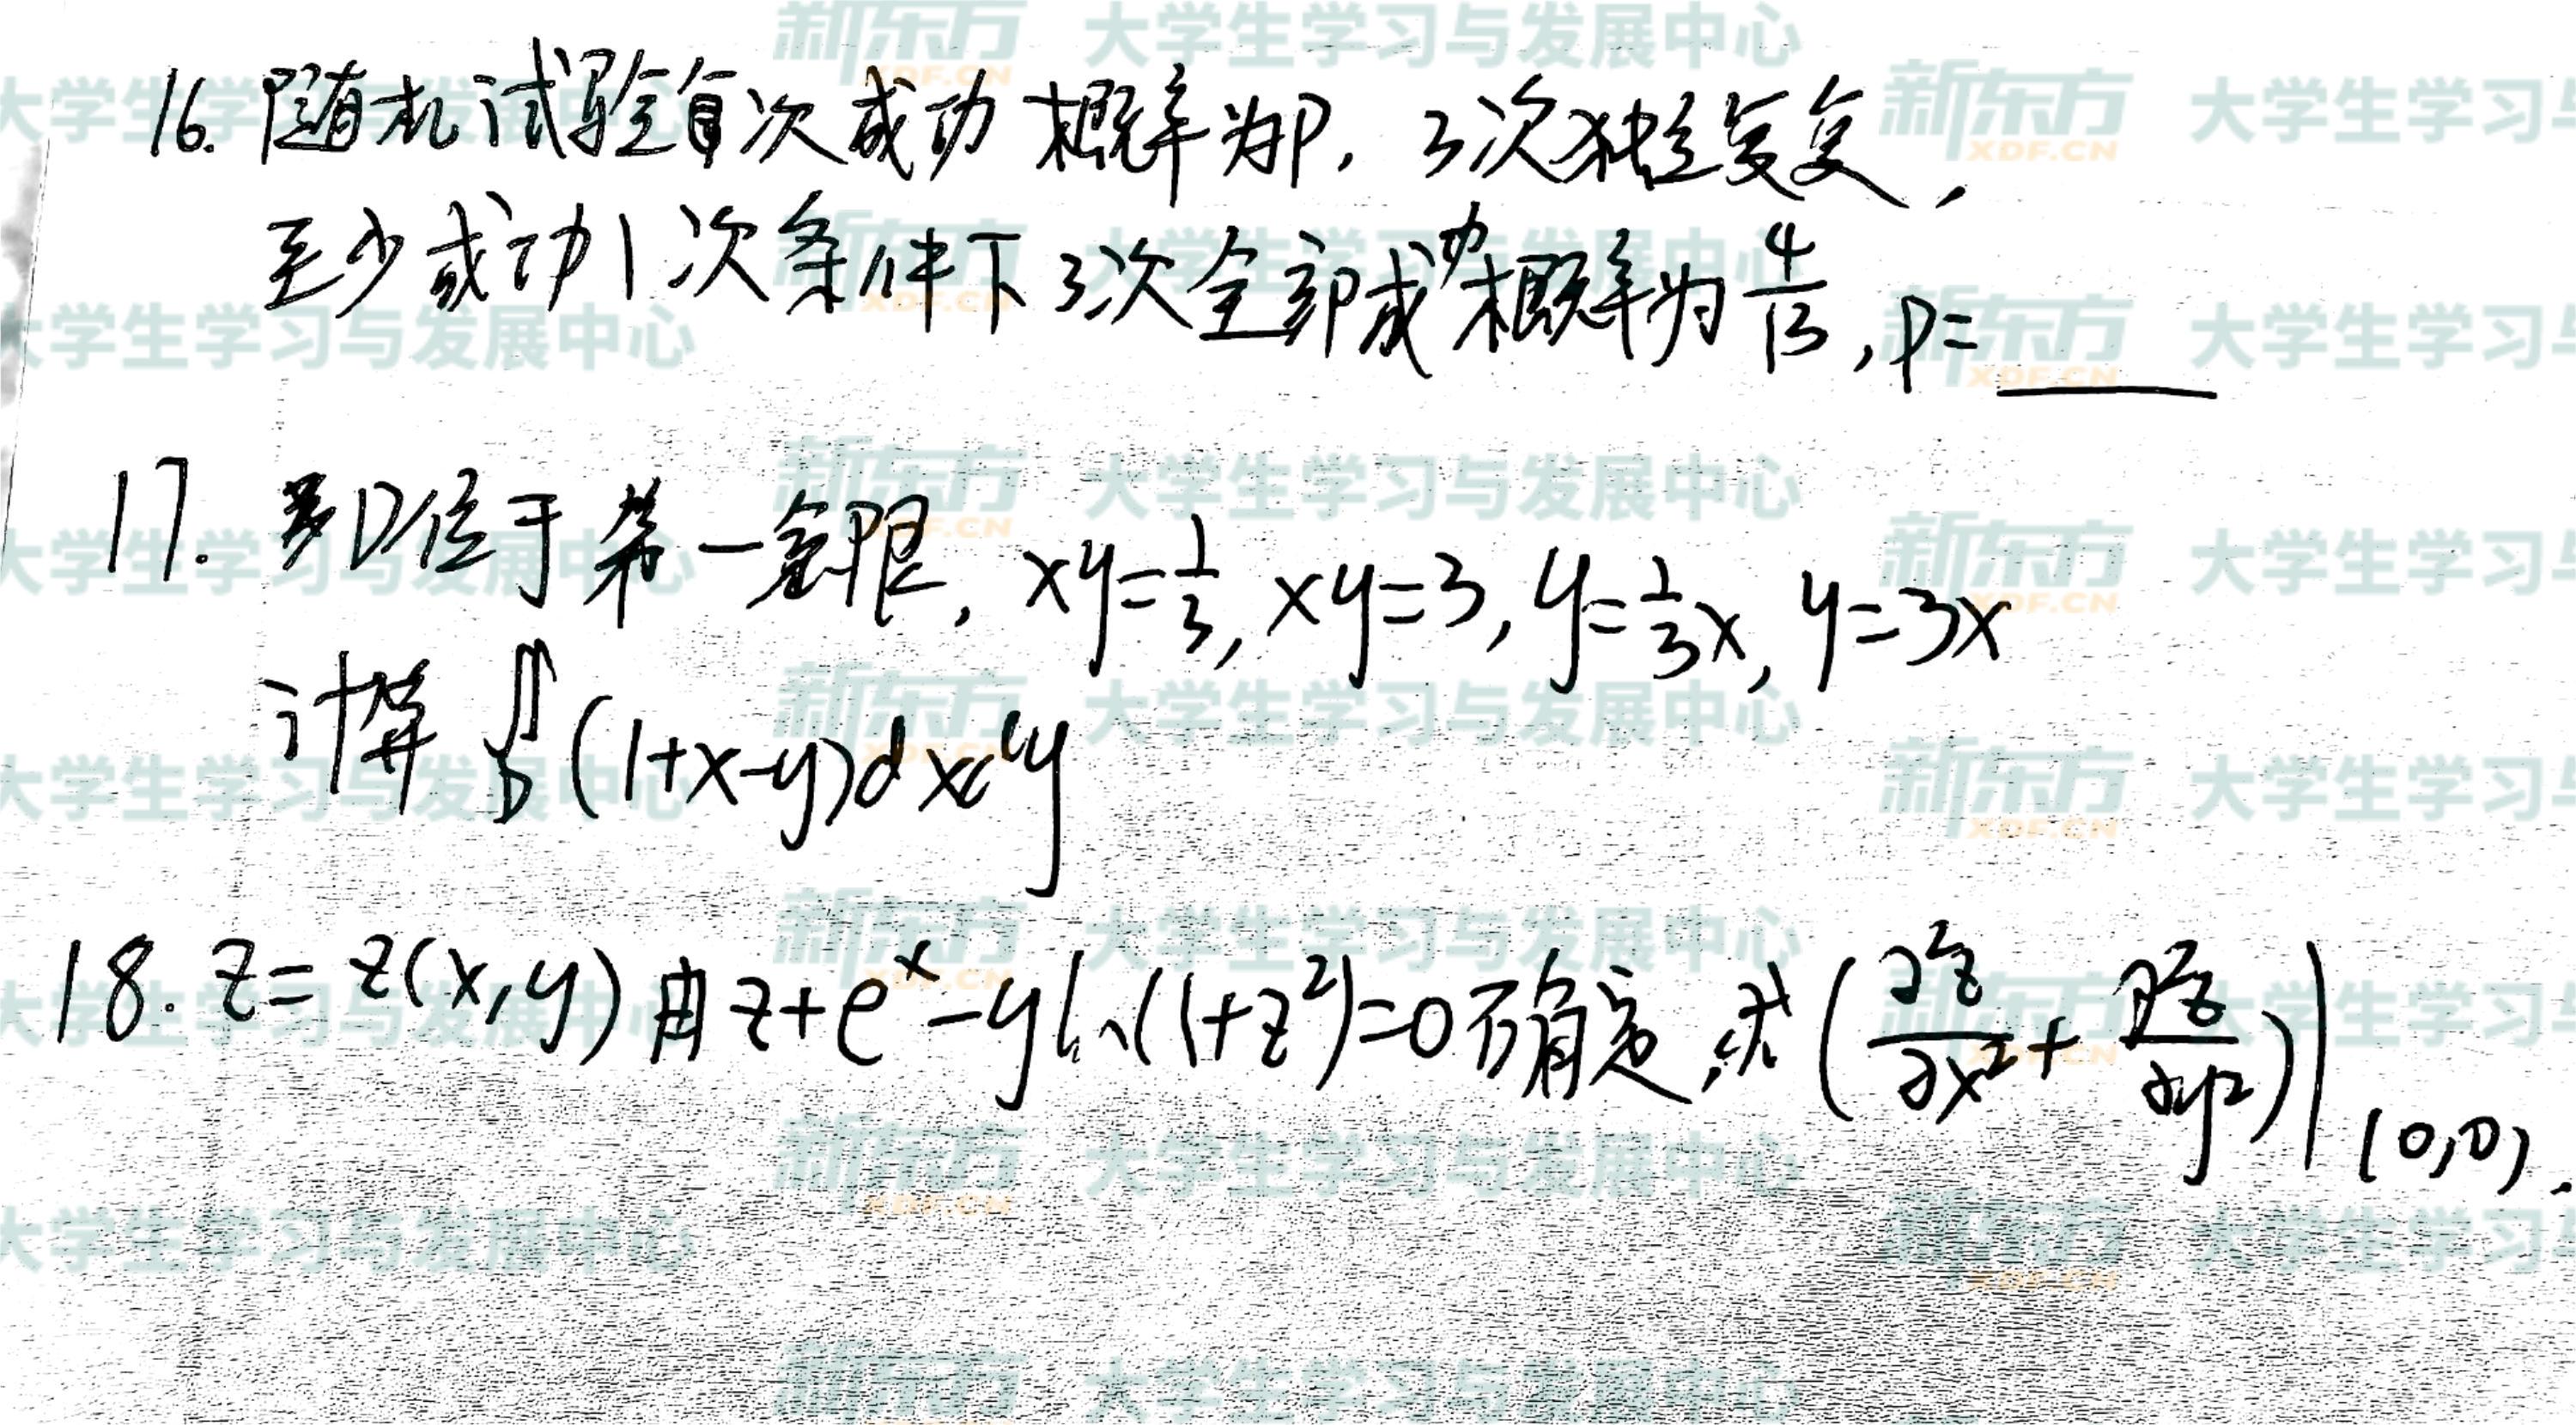 16. 随机试验每次成功概率为P, 3次独立重复,
至少成功1次条件下3次全部成功概率为 4/13, P=____
17. 平面D位于第一象限, xy=1/3, xy=3, y=1/3x, y=3x
计算 ∬_D (1+x-y)dxdy
18. z=z(x,y) 由 z+e^x-yln(1+z²)=0 确定, 求 (∂²z/∂x² + ∂²z/∂y²)|(0,0).
新东方 XDF.CN 大学生学习与发展中心